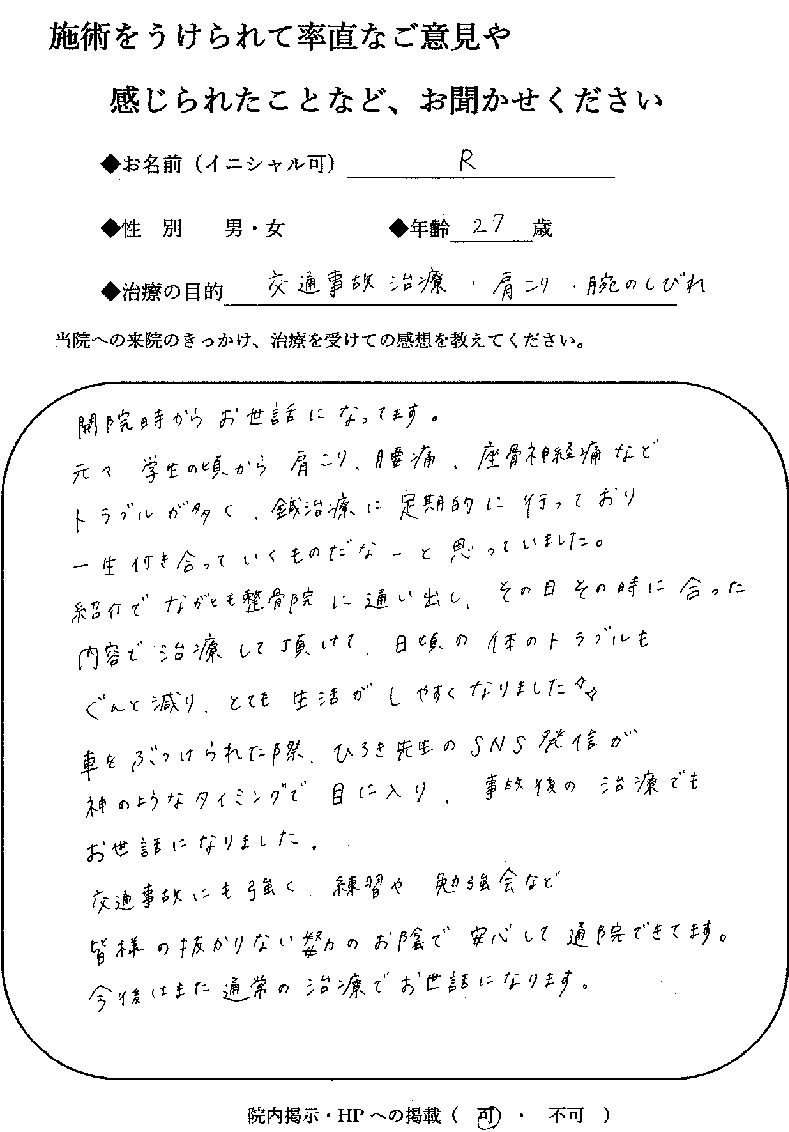 施術をうけられて率直なご意見や
感じられたことなど、お聞かせください
◆お名前（イニシャル可） R
◆性 別 男・女 ◆年齢 27 歳
◆治療の目的 交通事故治療・肩こり・腕のしびれ
当院への来院のきっかけ、治療を受けての感想を教えてください。
開院時からお世話になってます。
元々学生の頃から肩こり、腰痛、座骨神経痛など
トラブルが多く、鍼治療に定期的に行っており
一生付き合っていくものだなーと思っていました。
紹介でながとも整骨院に通い出し、その日その時に合った
内容で治療して頂けて、日頃の体のトラブルも
ぐんと減り、とても生活がしやすくなりました
車をぶつけられた際、ひろき先生のSNS発信が
神のようなタイミングで目に入り、事故後の治療でも
お世話になりました。
交通事故にも強く、練習や勉強会など
皆様の抜かりない努力のお陰で安心して通院できてます。
今後はまた通常の治療でお世話になります。
院内掲示・HPへの掲載（ 可 ・ 不可 ）